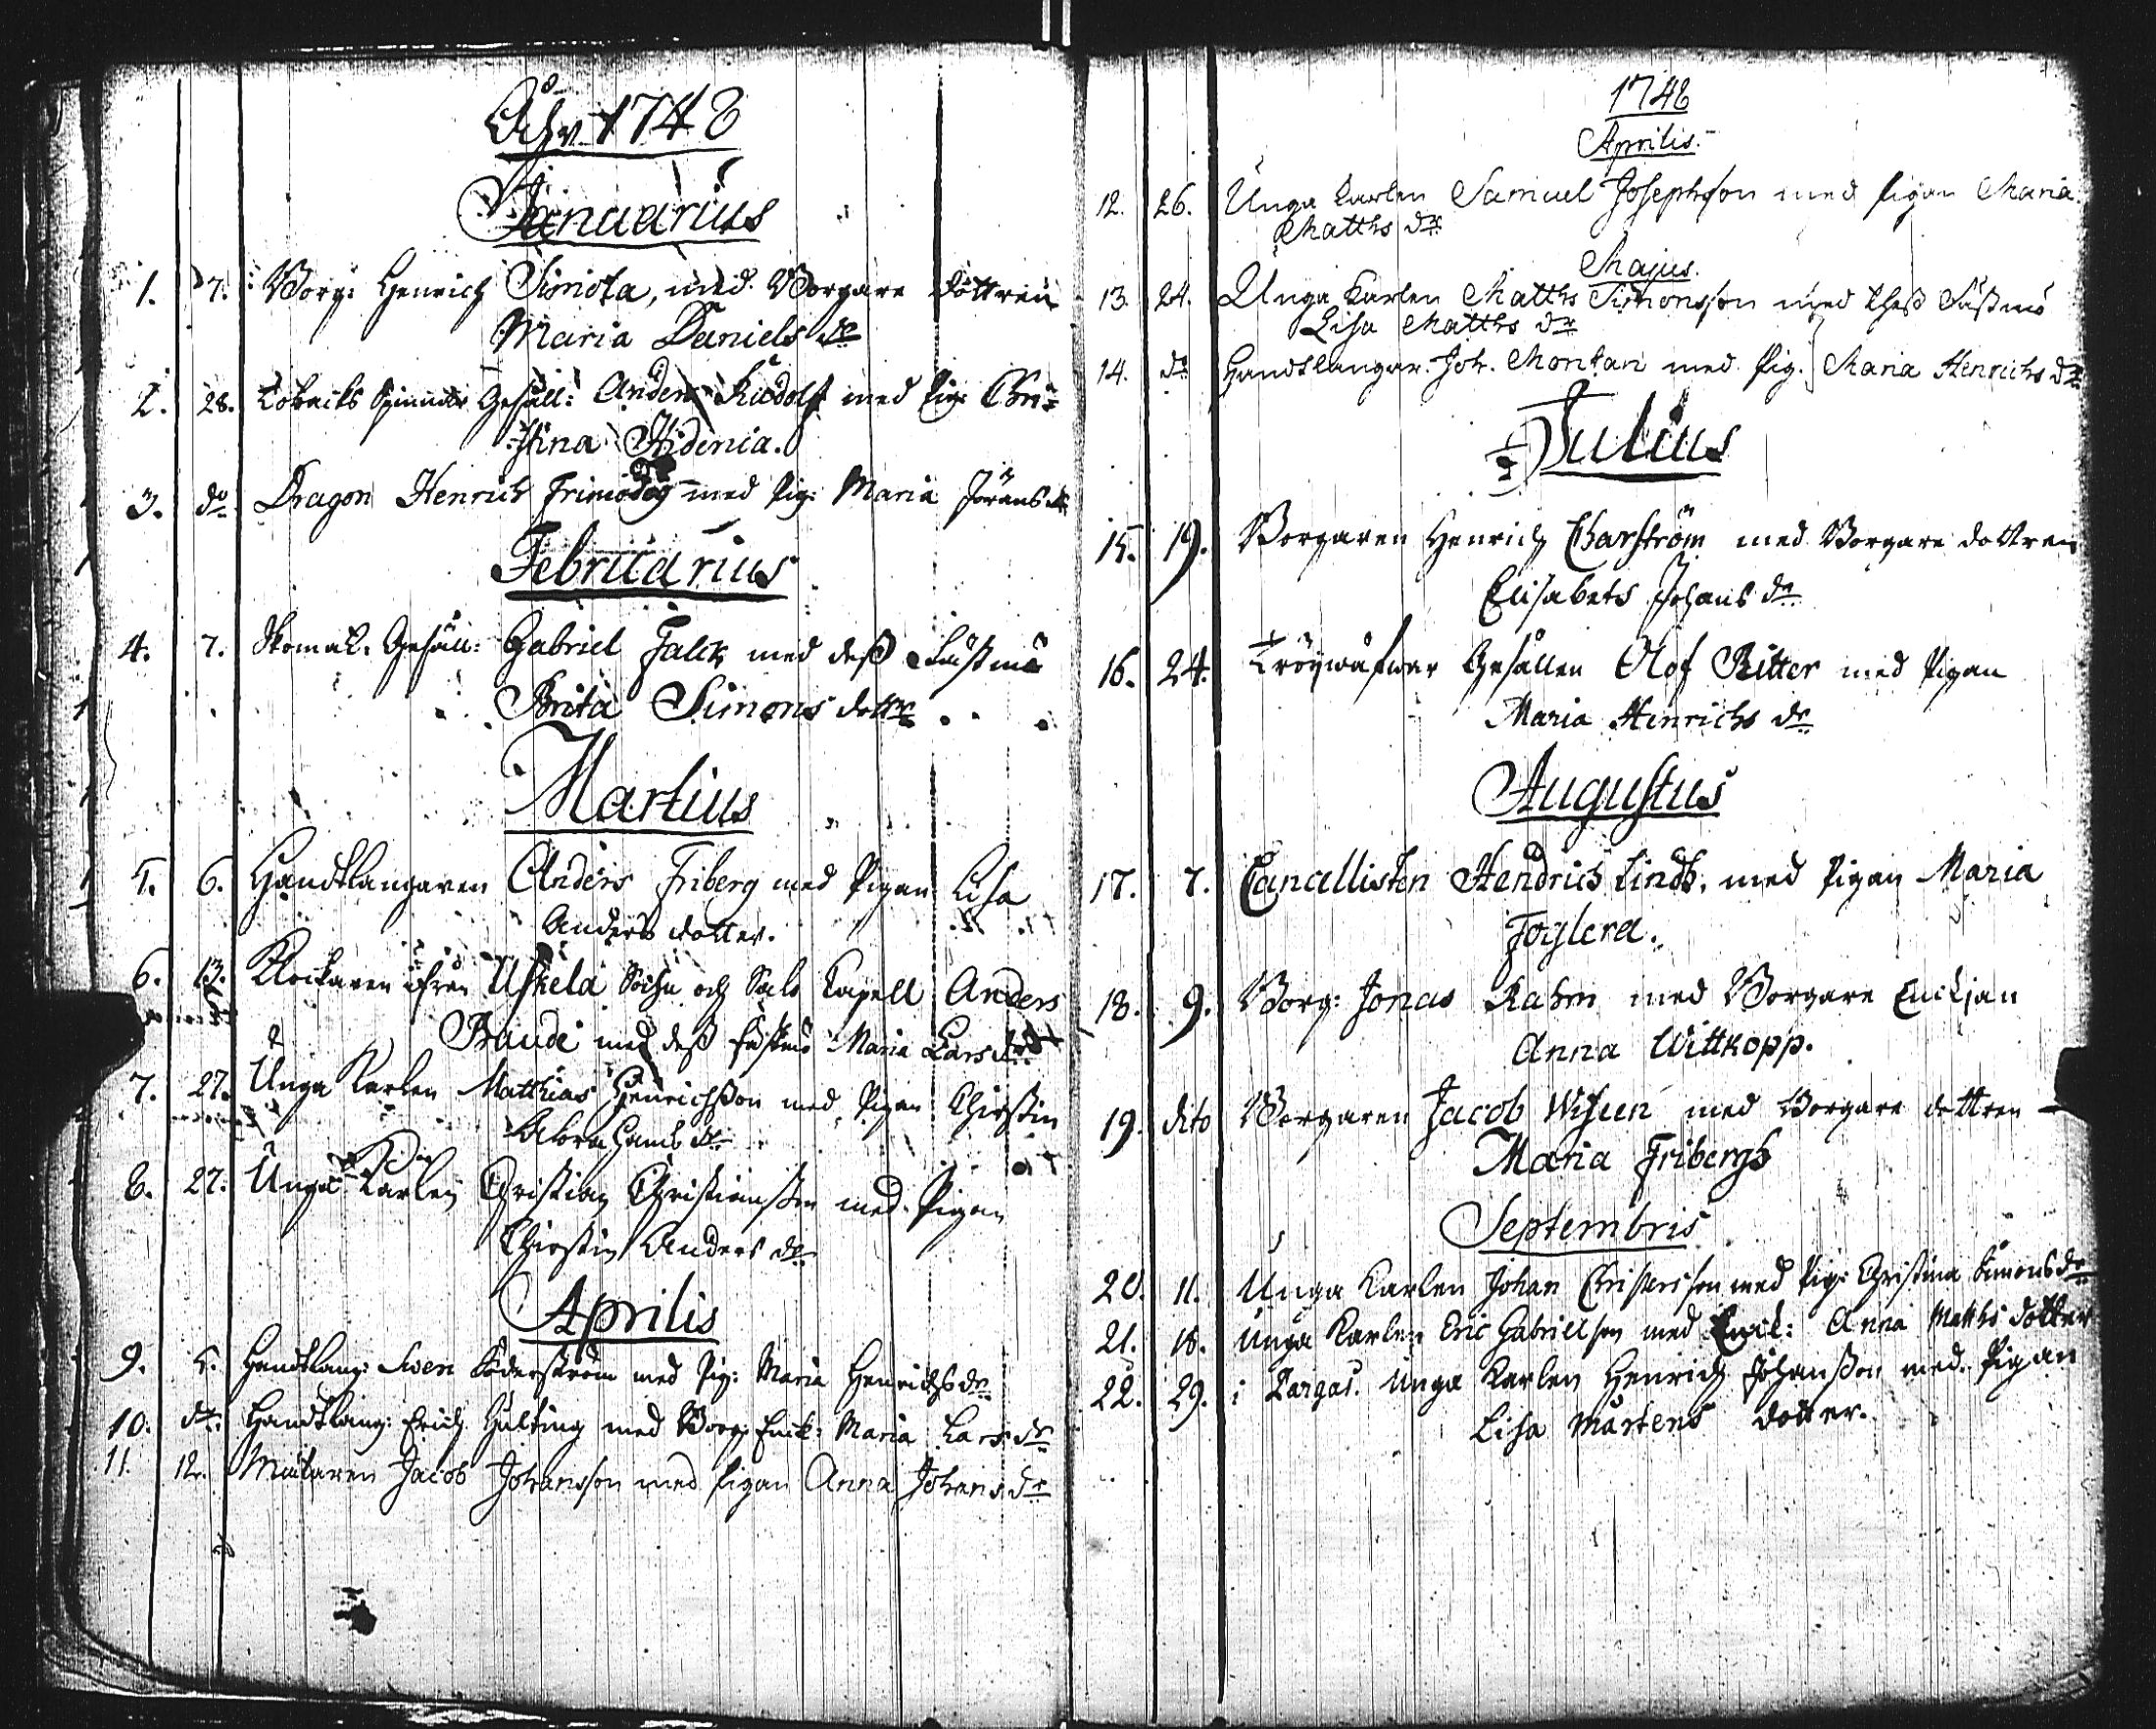 Åhr 1748
Januarius
1. 7. Borg: Henrich Simola, med Borgare dottren
Maria Daniels dr
2. 28. Tobacks Spinnare Gesäll: Anders Rudolf med Pig: Chri-
stina Hidenia.
3. do Dragon Henrich Frimodig med Pig: Maria Jörans dr
Februarius
4. 7. Skomak. Gesäll: Gabriel Falck med dess Fästmö
Brita Simons dottr
Martius
5. 6. Handtlangaren Anders Friberg med Pigan Lisa
Anders dotter.
6. 13. Klockaren ifrån Uskela Sochn och Salo Capell Anders
Brande med dess fästmö Maria Lars dr
7. 27. Unga Karlen Matthias Henrichsson med Pigan Chirstin
Abrahams dr
8. 27. Unga Karlen Christian Christiansson med Pigan
Chirstin Anders dr
Aprilis
9. 5. Handtlang: Sven Söderström med Pig: Maria Henrichs dr
10. do Handtlang: Erich Hulting med Borg: Enk: Maria Lars dr
11. 12. Mätaren Jacob Johansson med Pigan Anna Johans dr
1748
Aprilis.
12. 26. Unga Karlen Samuel Josephsson med Pigan Maria
Matths dr
Majus.
13. 24. Unga Karlen Matths Simonsson med thess Fästmö
Lisa Matths dr
14. do Handtlangar. Joh. Montan med Pig. Maria Henrichs dr
Julius
15. 19. Borgaren Henrich Charström med Borgare dottren
Elisabets Johans dr
16. 24. Tröijwäfwar Gesällen Olof Ritter med Pigan
Maria Henrichs dr
Augustus
17. 7. Cancellisten Hendrich Lindh, med Pigan Maria
Foglera.
18. 9. Borg: Jonas Rahm med Borgare Enckjan
Anna Wittkopp.
19. dito Borgaren Jacob Wiseen med Borgare dottren
Maria Fribergh
Septembris
20. 11. Unga Karlen Johan Christersson med Pig: Christina Simons dr
21. 18. Unga Karlen Eric Gabrielsson med Enck: Anna Matths dotter
22. 29. i Pargas. Unga Karlen Henrich Johansson med Pigan
Lisa Mårtens dotter.